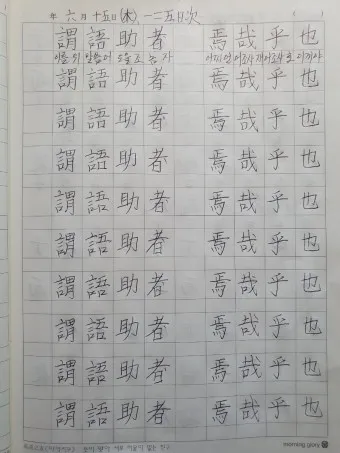 年 六 月 十五 日 (木) 一二五日次
謂 語 助 者 焉 哉 乎 也
이를 위 말씀 어 도울 조 놈 자 어찌 언 어조사 재 어조사 호 이끼 야
謂 語 助 者 焉 哉 乎 也
謂 語 助 者 焉 哉 乎 也
謂 語 助 者 焉 哉 乎 也
謂 語 助 者 焉 哉 乎 也
謂 語 助 者 焉 哉 乎 也
謂 語 助 者 焉 哉 乎 也
謂 語 助 者 焉 哉 乎 也
謂 語 助 者 焉 哉 乎 也
謂 語 助 者 焉 哉 乎 也
morning glory